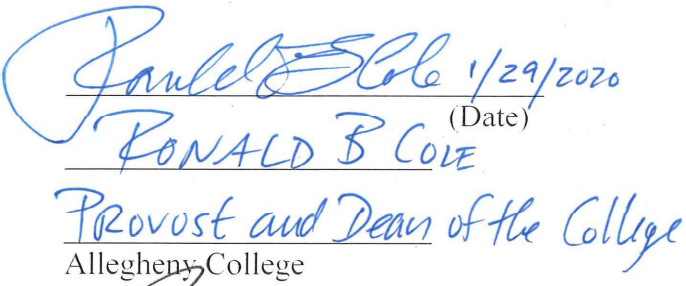 Ronald B Cole 1/29/2020
(Date)
RONALD B COLE
Provost and Dean of the College
Allegheny College